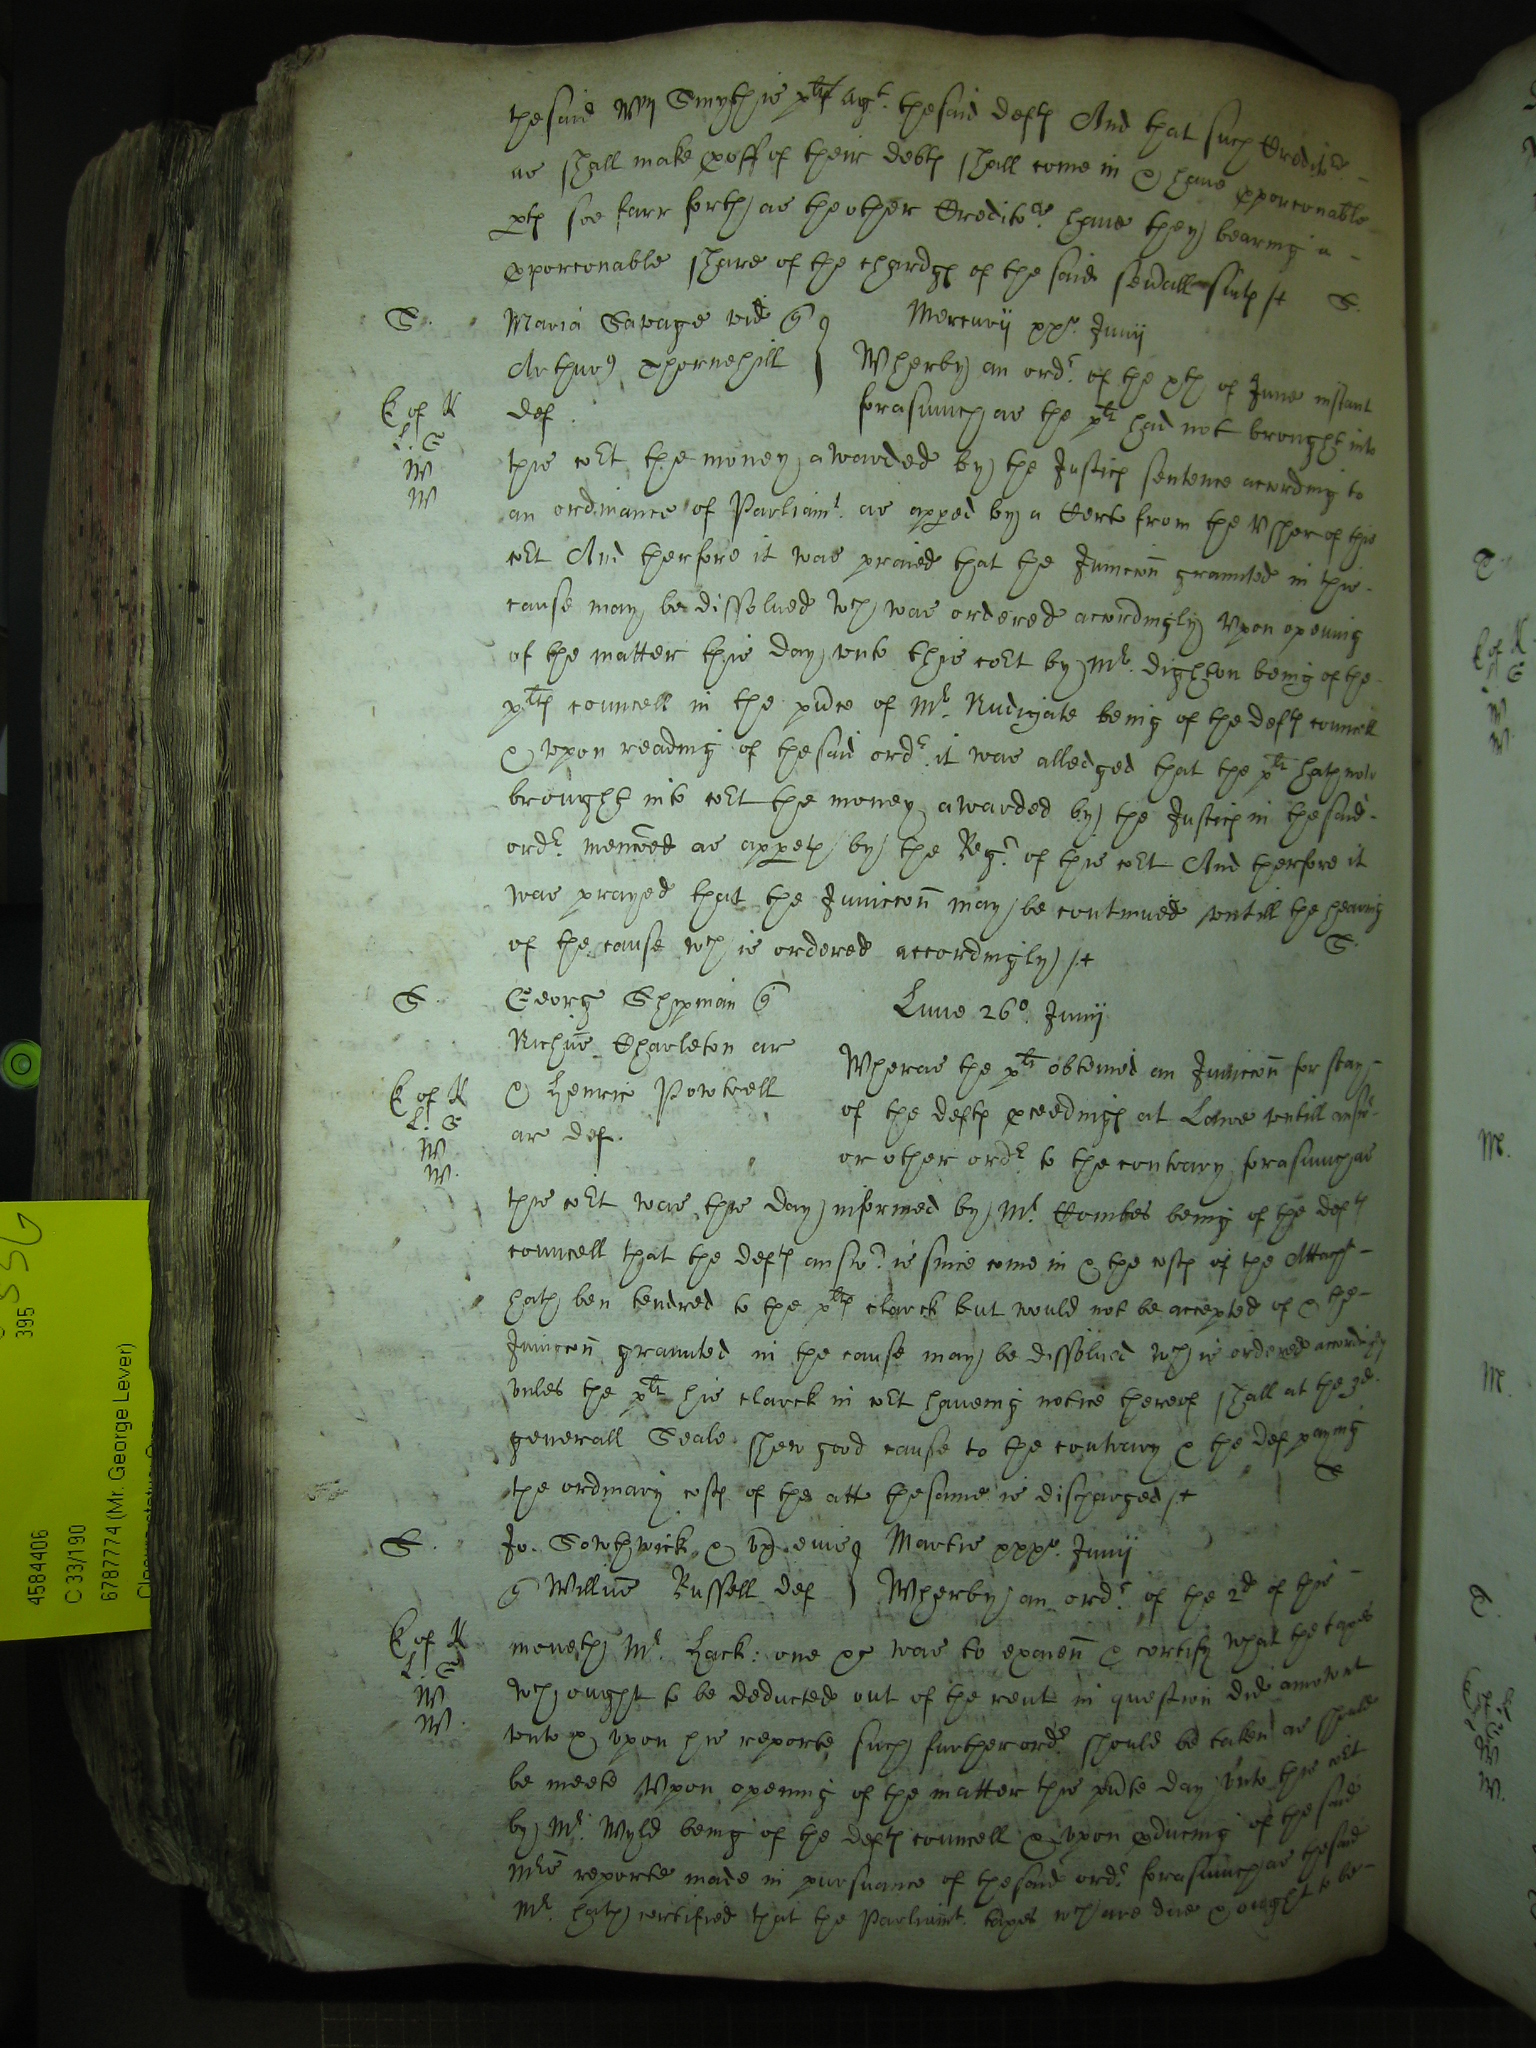 the said Wm Smyth is plt agt. the said deftes And that such Creditors
as shall make proff of their debtes shall come in & have proporconable
ptes soe farr forth as the other Creditors have they bearing a
proporconable share of the chardges of the said severall suites /.
S.
S.
Maria Savage vid q
Mercurii xxo. Junii
Arthurus Thornehill
Wherby an ordr. of the xth of June instant
def.
forasmuch as the plt had not brought into
E of K
L. G
W
W
this cort the money awarded by the Justices sentence according to
an ordinance of Parliamt. as appeed by a Certe from the Usher of this
cort And therfore it was praied that the Iniunccon graunted in this
cause may be dissolved wch was ordered acordingly Upon opening
of the matter this day unto this cort by Mr. Dighton being of the
pltes councell in the pnce of Mr. Rudgate being of the deftes councell
& upon reading of the said ordr. it was alledged that the plt hath now
brought into cort the money awarded by the Justices in the said
ordr. menconed as appeth by the Regr. of this cort And therfore it
was prayed that the Iniunccon may be continued untill the hearing
of the cause wch is ordered accordingly /.
S.
S.
Georg Shipman q
Lune 26o. Junii
Richus Charleton ar
Wheras the plt obteined an Iniunccon for stay
& Henric Powtrell
of the deftes proceedinges at Lawe untill answr.
ar def.
or other ordr. to the contrary forasmuch as
E of K
L. G
W
W.
this cort was this day informed by Mr. Combes being of the deftes
councell that the deftes answr. is since come in & the costes of the Attachmt
hath ben tendred to the pltes clarck but would not be accepted of & the
Iniunccon graunted in the cause may be dissolved wch is ordered accordingly
unles the plt his clarck in cort haveing notice thereof shall at the 3d.
generall Seale shew good cause to the contrary & the def paying
the ordinary costes of the att the same is discharged /.
S
S.
Jo. Sowthwick & ux eius
Martis xxo. Junii
q Willus Russell def
Wherby an ordr. of the 2d of this
E of K
L. G
W
W.
moneth Mr. Hack: one &c was to exaien & certify what the taxes
wch ought to be deducted out of the rent in question did amount
unto & upon his reporte such further ordr. should be taken as should
be meete Upon opening of the matter this pnte day unto this cort
by Mr. Wyld being of the deftes councell & upon producing of the said
Mrs reporte made in pursuance of the said ordr. forasmuch as the said
Mr. hath certified that the Parliamt. taxes wch are due & ought to be
395
4584406
C 33/190
6787774 (Mr. George Lever)